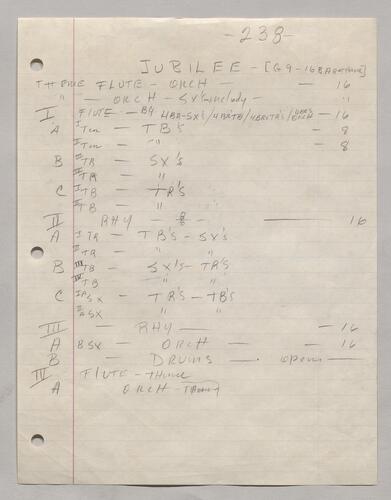 -238-
JUBILEE - [G 9 - 16 BAR
THEME FLUTE - ORCH - 16
" - ORCH - SX's melody - "
I FLUTE - B4 4BR-SX's/4BRTB/4BRTR's/4BRS ORCH - 16
A I Ten - TB's - 8
II Ten - " - 8
B I TR - SX's
II TR - "
C I TB - TR's
II TB - "
II RHY - 8 - 16
A I TR - TB's - SX's
II TR " "
B III TB - SX's - TR's
III TB - " "
C I A SX - TR's - TB's
II A SX " "
III - RHY - - 16
A B SX - ORCH - - 16
B - DRUMS - open -
IV FLUTE - THEME
A ORCH - THEME